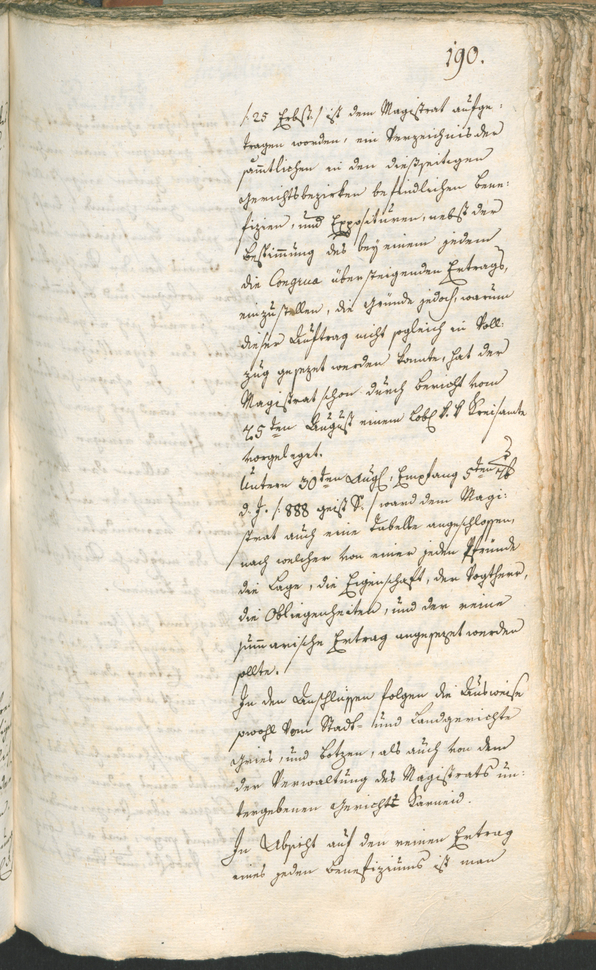 190.
/: 25 Erbst :/ ist dem Magistrat aufge:
tragen worden, ein Verzeichnis der
sämtlichen in den dießseitigen
Gerichtsbezirken befindlichen Bene:
fizien, und Exposituren, nebst der
Bestimmung des bey einem jedem
die Congrua übersteigenden Ertrags,
einzustellen, die Gründe jedoch, warum
dieser Auftrag nicht sogleich in Voll:
zug gesezet werden konnte, hat der
Magistrat schon durch Bericht vom
25ten August einem löbl. k. k. Kreisamte
vorgeleget.
Untern 30ten Augl: Empfang 5ten 7b
d. J. /: 888 geist. S. :/ ward dem Magi:
strat auch eine Tabelle angeschlossen,
nach welcher von einer jeden Pfründe
die Lage, die Eigenschaft, der Vogtherr,
die Obliegenheiten, und der reine
summarische Ertrag angesezet werden
sollte.
In den Anschlüssen folgen die Ausweise
sowohl vom Stadt- und Landgerichte
Gries, und Botzen, als auch von dem
der Verwaltung des Magistrats un:
tergebenen Gerichte Karneid.
In Absicht auf den reinen Ertrag
eines jeden Benefiziums ist man